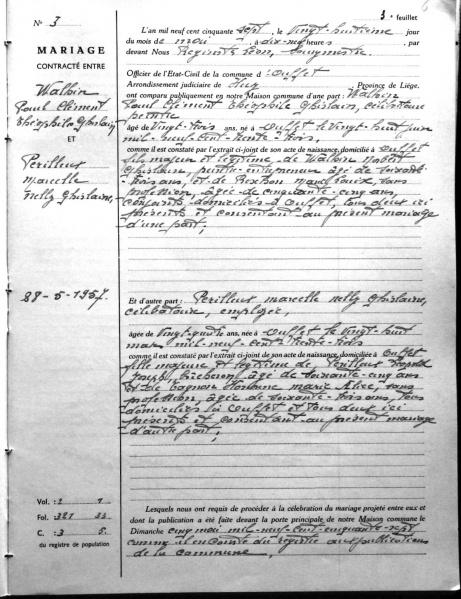 3e feuillet
N° 3
MARIAGE
CONTRACTÉ ENTRE
Walhin
Paul Clément
Théophile Ghislain
ET
Perilleux
Marcelle
Nelly Ghislaine,
28-5-1957.
Vol. : 2 1
Fol. 327 33
C. : 3 5.
du registre de population
L'an mil neuf cent cinquante sept, le vingt huitième jour
du mois de mai, à dix-neuf heures, par
devant Nous Léon, bourgmestre,
Officier de l'Etat-Civil de la commune d'Ouffet
Arrondissement judiciaire de Huy, Province de Liége.
ont comparu publiquement en notre Maison commune d'une part : Walhin
Paul Clément Théophile Ghislain, célibataire
peintre
âgé de vingt-trois ans, né à Ouffet le vingt-huit juin
mil neuf cent trente-trois,
comme il est constaté par l'extrait ci-joint de son acte de naissance, domicilié à Ouffet
fils majeur et légitime de Walhin
Ghislain, peintre-entrepreneur âgé de soixante-
trois ans, et de sans
profession, âgée de cinquante-cinq ans
conjoints domiciliés à Ouffet, tous deux ici
présents et consentant au présent mariage
d'une part,
Et d'autre part : Perilleux Marcelle Nelly Ghislaine,
célibataire, employée,
âgée de vingt-quatre ans, née à Ouffet le vingt-huit
mars mil-neuf-cent-trente-trois
comme il est constaté par l'extrait ci-joint de son acte de naissance, domiciliée à Ouffet
fille majeure et légitime de Perilleux
Joseph, âgé de soixante-cinq ans
et de Marie Alice, sans
profession, âgée de soixante-trois ans, tous
domiciliés à Ouffet et tous deux ici
présents et consentant au présent mariage
d'autre part,
Lesquels nous ont requis de procéder à la célébration du mariage projeté entre eux et
dont la publication a été faite devant la porte principale de notre Maison commune le
Dimanche cinq mai mil-neuf-cent-cinquante-sept
comme il en conste du registre aux publications
de la commune,